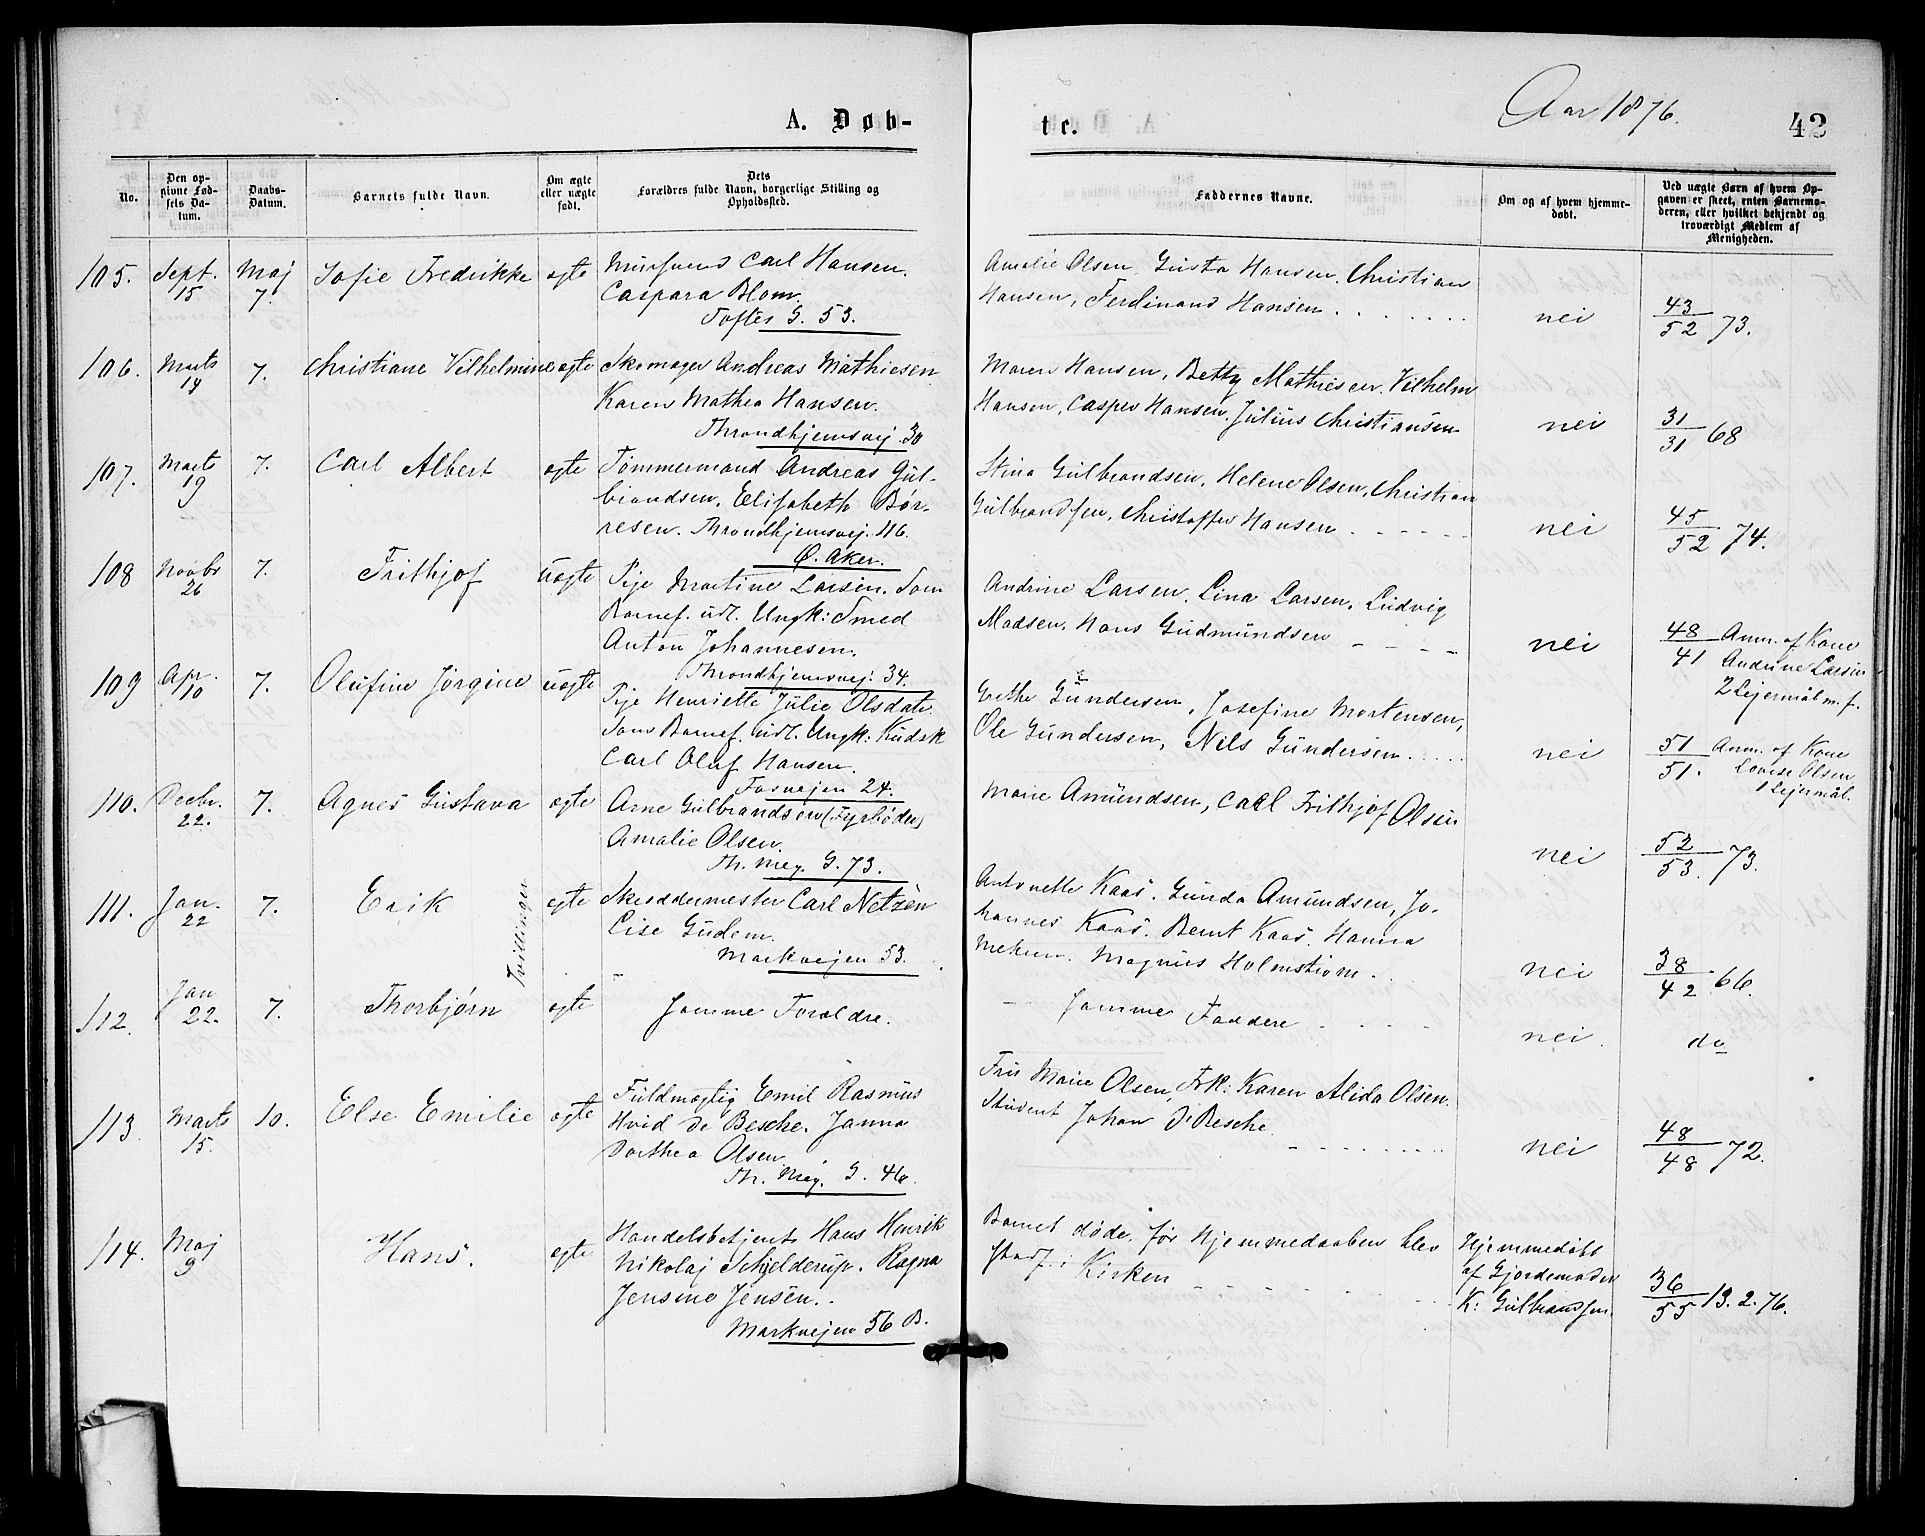 A. Døb-
te.
Aar 1876.
42
No.
Den op-
givne Fød-
sels Da-
tum.
Daabs-
Datum.
Barnets fulde Navn.
Om ægte
eller uægte
født.
Dets
Forældres fulde Navn, borgerlige Stilling og
Opholdssted.
Faddernes Navne.
Om og af hvem hjemme-
døbt.
Ved uægte Børn af hvem Op-
gaven er skeet, enten Barnemo-
deren, eller hvilket bekjendt og
troværdigt Medlem af
Menigheden.
105. Sept. 15 Maj 7. Sofie Fredrikke ægte Mursvend Carl Hansen.
Caspara Blom.
Toftes G. 53.
Amalie Olsen, Gusta Hansen, Christian
Hansen, Ferdinand Hansen
nei
43/52 73.
106. Marts 14 7. Christiane Vilhelmine ægte Skomager Andreas Mathiesen
Karen Mathea Hansen.
Throndhjemsvej. 30
Maren Hansen, Betty Mathiesen, Vilhelm
Hansen, Casper Hansen, Julius Christiansen
nei
31/31 68
107. Marts 19 7. Carl Albert ægte Tømmermand Andreas Gul-
brandsen, Elisabeth Bør-
resen. Throndhjemsvej. 116.
Ø. Aker.
Stina Gulbrandsen, Helene Olsen, Christian
Gulbrandsen, Christoffer Hansen
nei
45/52 74.
108 Novbr 26 7. Frithjof uægte Pige Martine Larsen. Som
Barnef. udl. Ungk: Smed
Anton Johannesen.
Throndhjemsvej. 34.
Andrine Larsen, Lina Larsen, Ludvig
Madsen, Hans Gudmundsen
nei
48/41 Anm. af Kone
Andrine Larsen
2 Lejermål m. f.
109 Apr. 10 7. Olufine Jørgine uægte Pige Henriette Julie Olsdatr.
Som Barnef. udl. Ungk: Kudsk
Carl Oluf Hansen.
Fosvejen 24.
Grethe Gundersen, Josefine Mortensen,
Ole Gundersen, Nils Gundersen
nei
51/51. Anm. af Kone
Lovise Olsen
1 Lejermål.
110. Decbr. 22. 7. Agnes Gustava ægte Arne Gulbrandsen (Fyrbøder)
Amalie Olsen.
Th. Mey. G. 73.
Marie Amundsen, Carl Frithjof Olsen
nei
52/53. 73.
111. Jan. 22 7. Erik ægte Skræddermester Carl Netzèn
Lise Gudem.
Markvejen 53.
Tvillinger
Antonette Kaas, Gunda Amundsen, Jo-
hannes Kaas, Bernt Kaas, Hanna
Magnus Holmstrøm.
nei
38/42 66.
112. Jan 22. 7. Thorbjørn ægte Samme Forældre.
Samme Faddere
nei.
do
113. Marts 15. 10. Else Emilie ægte Fuldmægtig Emil Rasmus
Hvid de Besche. Janna
Dorthea Olsen
Th. Mey. G. 46.
Fru Marie Olsen, Frk: Karen Alida Olsen.
Student Johan d'Besche
nei
48/48 72.
114. Maj 9 Hans. ægte Handelsbetjent Hans Henrik
Nikolaj Schjelderup. Ragna
Jensine Jensen.
Markvejen 56 B.
Barnet døde, før Hjemmedaaben blev
stadf. i Kirken
Hjemmedøbt
af Gjordemoder
K: Gulbrandsen.
36/55 13.2.76.